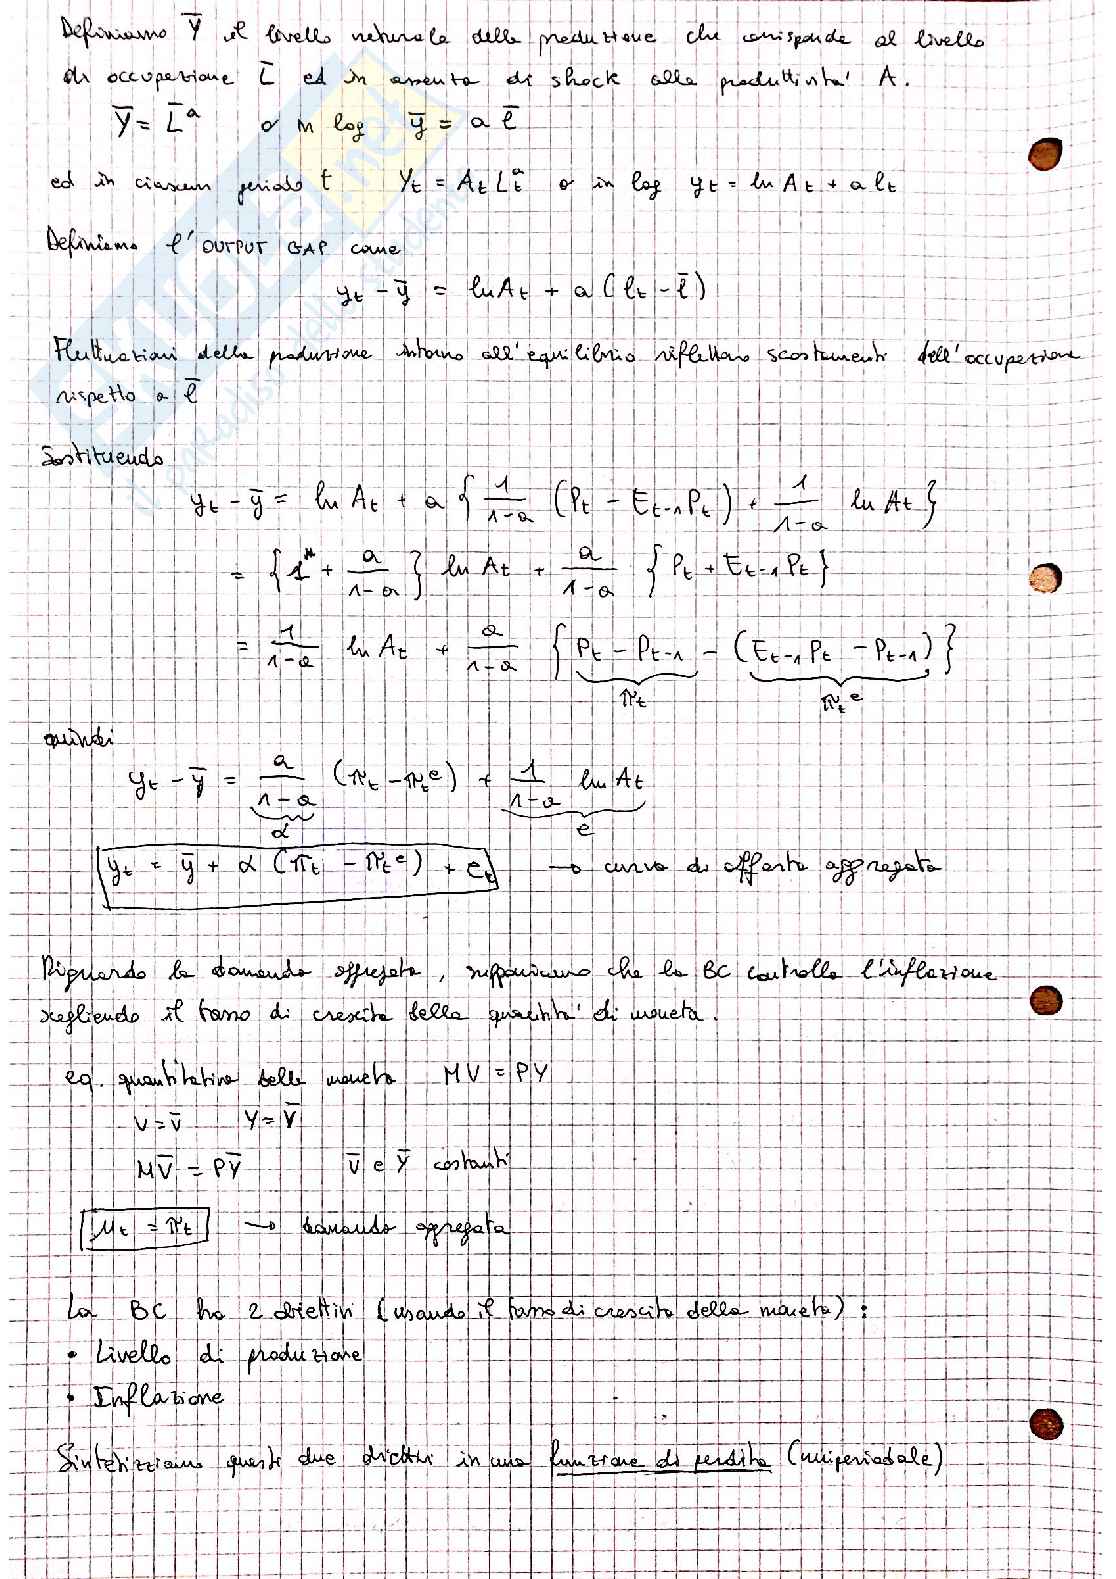 Definiamo Ȳ il livello naturale della produzione che corrisponde al livello
di occupazione L̄ ed in assenza di shock alla produttività A.
Ȳ = L̄^a o in log ȳ = a l̄
ed in ciascun periodo t Y_t = A_t L_t^a o in log y_t = ln A_t + a l_t
Definiamo l'OUTPUT GAP come
y_t - ȳ = ln A_t + a (l_t - l̄)
Fluttuazioni della produzione intorno all'equilibrio riflettono scostamenti dell'occupazione
rispetto a l̄
Sostituendo
y_t - ȳ = ln A_t + a { 1/(1-a) (P_t - E_{t-1} P_t) + 1/(1-a) ln A_t }
= { 1 + a/(1-a) } ln A_t + a/(1-a) { P_t + E_{t-1} P_t }
= 1/(1-a) ln A_t + a/(1-a) { P_t - P_{t-1} - (E_{t-1} P_t - P_{t-1}) }
π_t π_t^e
quindi
y_t - ȳ = a/(1-a) (π_t - π_t^e) + 1/(1-a) ln A_t
α e
y_t = ȳ + α (π_t - π_t^e) + e_t → curva di offerta aggregata
Riguardo la domanda aggregata, supponiamo che la BC controlla l'inflazione
scegliendo il tasso di crescita della quantità di moneta.
eq. quantitativa della moneta MV = PY
V = V̄ Y = Ȳ
MV̄ = PȲ V̄ e Ȳ costanti
μ_t = π_t → domanda aggregata
La BC ha 2 obiettivi (usando il tasso di crescita della moneta) :
• Livello di produzione
• Inflazione
Sintetizziamo questi due obiettivi in una funzione di perdita (uniperiodale)